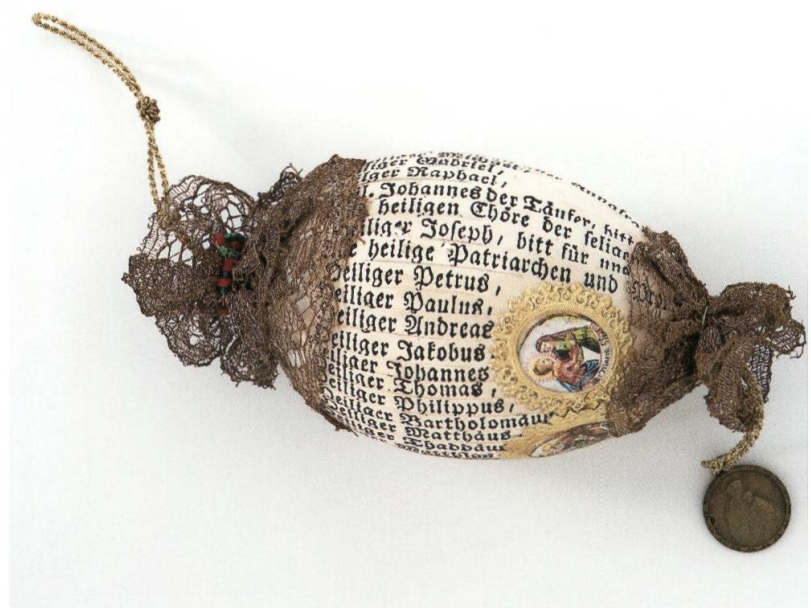 iliger Gabriel,
lger Raphael,
l. Johannes der Täufer, bitt
heiligen Chöre der selige
iliger Joseph, bitt für uns
e heilige Patriarchen und Pro
Heiliger Petrus,
eiliger Paulus,
eiliger Andreas
eiliger Jakobus
eiliger Johannes
eiliger Thomas,
eiliger Philippus,
eiliger Bartholomäus
eiliger Matthäus
iliger Thaddäus
Matthias